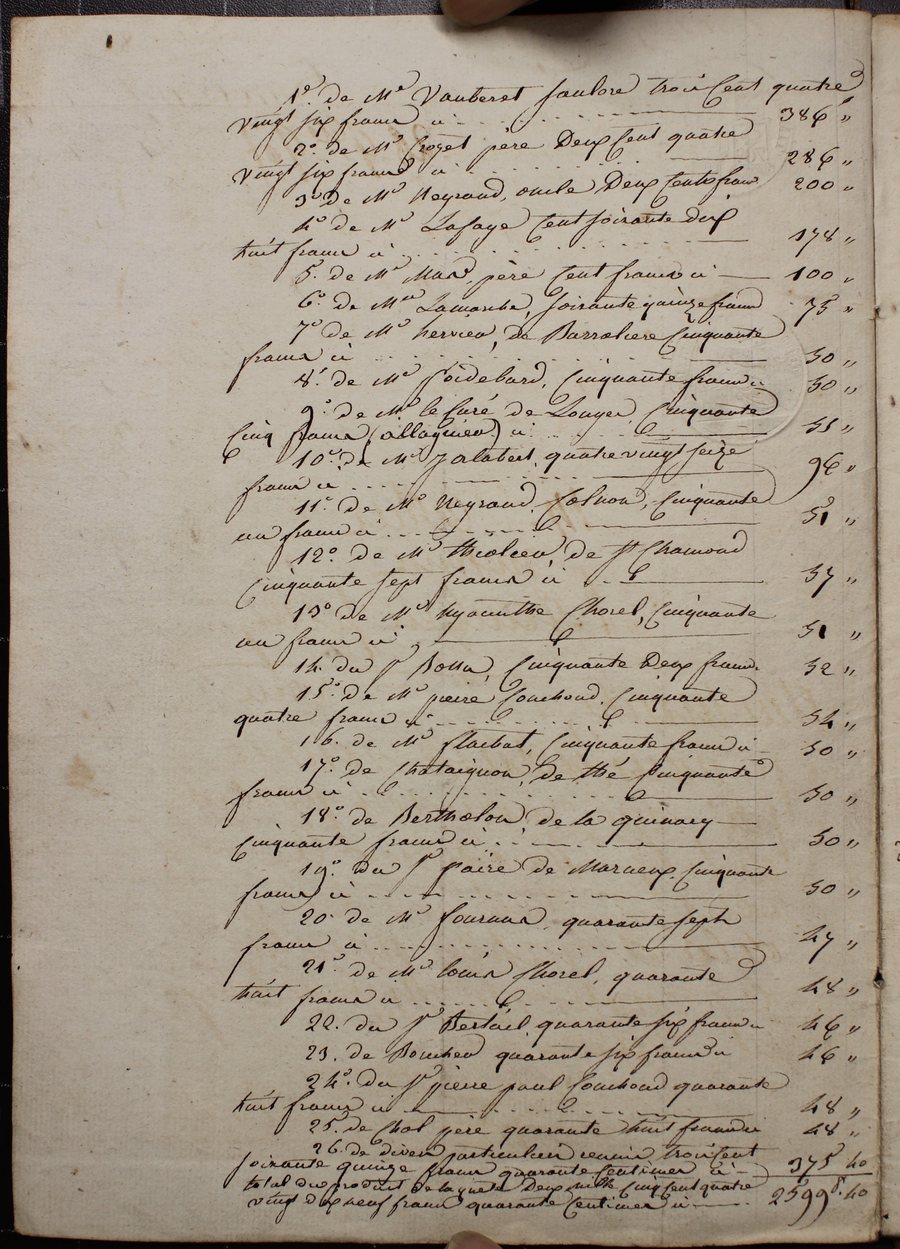 1° de Mr Vauberet faubore trois Cent quatre
vingt six francs ci 386 "
2° de Mr Croget père Deux Cent quatre
vingt six francs ci 286 "
3° de Mr Neyrand, oncle Deux Cents francs 200 "
4° de Mr Lafaye Cent soixante dix
huit francs ci 178 "
5° de Mr Mas, père Cent francs ci 100 "
6° de Mr Lamarche, soixante quinze francs 75 "
7° de Mr hervieu, de Barroliere Cinquante
francs ci 50 "
8° de Mr Coidebard, Cinquante francs ci 50 "
9° de Mr le Curé de Longes Cinquante
Cinq francs (allognieu) ci 55 "
10° de Mr Jalabert, quatre vingt seize
francs ci 96 "
11° de Mr Neyrand, Colnon, Cinquante
un francs ci 51 "
12° de Mr thiolieu de St Chamond
Cinquante sept francs ci 57 "
13° de Mr hyacinthe Chorel, Cinquante
un francs ci 51 "
14. du Sr Bonn, Cinquante Deux francs 52 "
15° de Mr pierre Couchoud, Cinquante
quatre francs ci 54 "
16. de Mr flachat, Cinquante francs ci 50 "
17° de Chataignon, de thé Cinquante
francs ci 50 "
18° de Bertholon de la quinary
Cinquante francs ci 50 "
19° du Sr paire de Marneux Cinquante
francs ci 50 "
20. de Mr fournas, quarante sept
francs ci 47 "
21° de Mr louis Chorel, quarante
huit francs ci 48 "
22. du Sr Bertail quarante six francs ci 46 "
23. de Boucheu quarante six francs ci 46 "
24° du Sr pierre paul Couchoud quarante
huit francs ci 48 "
25. de Chol père quarante huit francs ci 48 "
26. de divers particuliers réunis trois Cent
soixante quinze francs quarante Centimes ci 375 40
total du produit de la quete Deux mille Cinq Cent quatre
vingt dix neuf francs quarante Centimes ci 2599f. 40